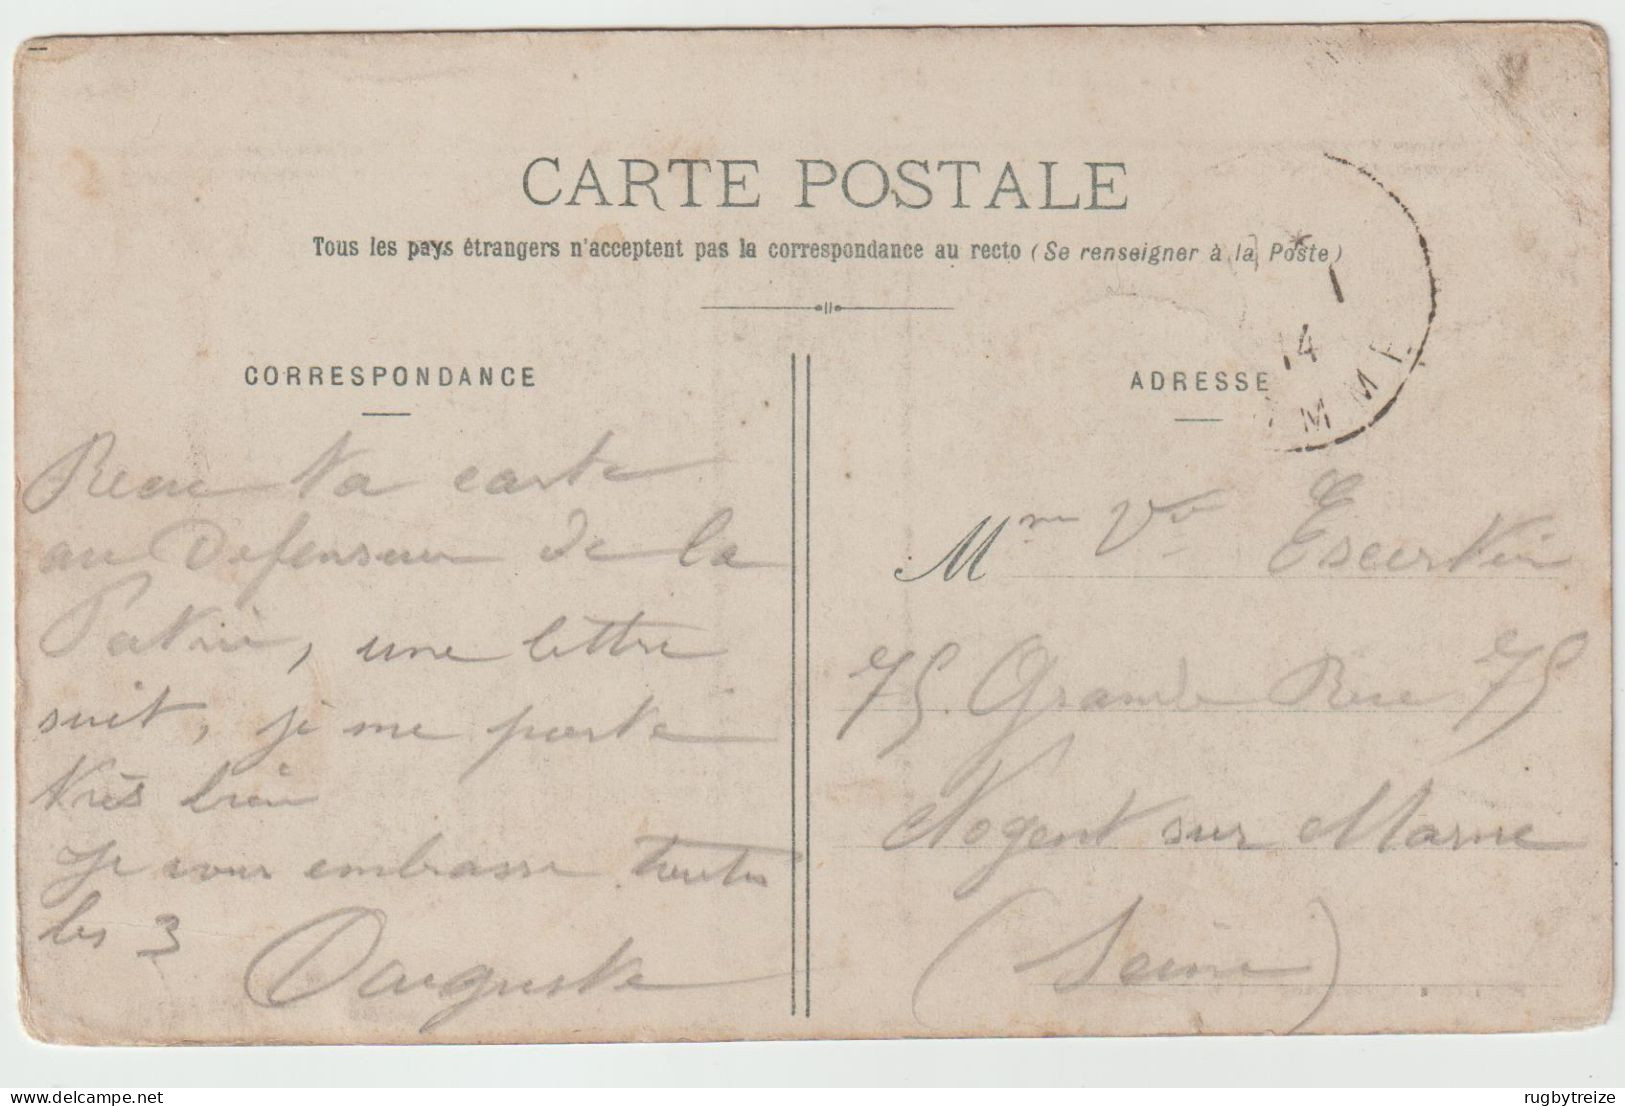 CARTE POSTALE
Tous les pays étrangers n'acceptent pas la correspondance au recto (Se renseigner à la Poste)
CORRESPONDANCE
ta carte
au Defenseur de la
Patrie, une lettre
suit, je me porte
très bien
Je vous embrasse toutes
les 3
Auguste
ADRESSE
14
MME
Mme Ve
75 Grande Rue 75
Nogent sur Marne
(Seine)
delcampe.net
rugbytreize